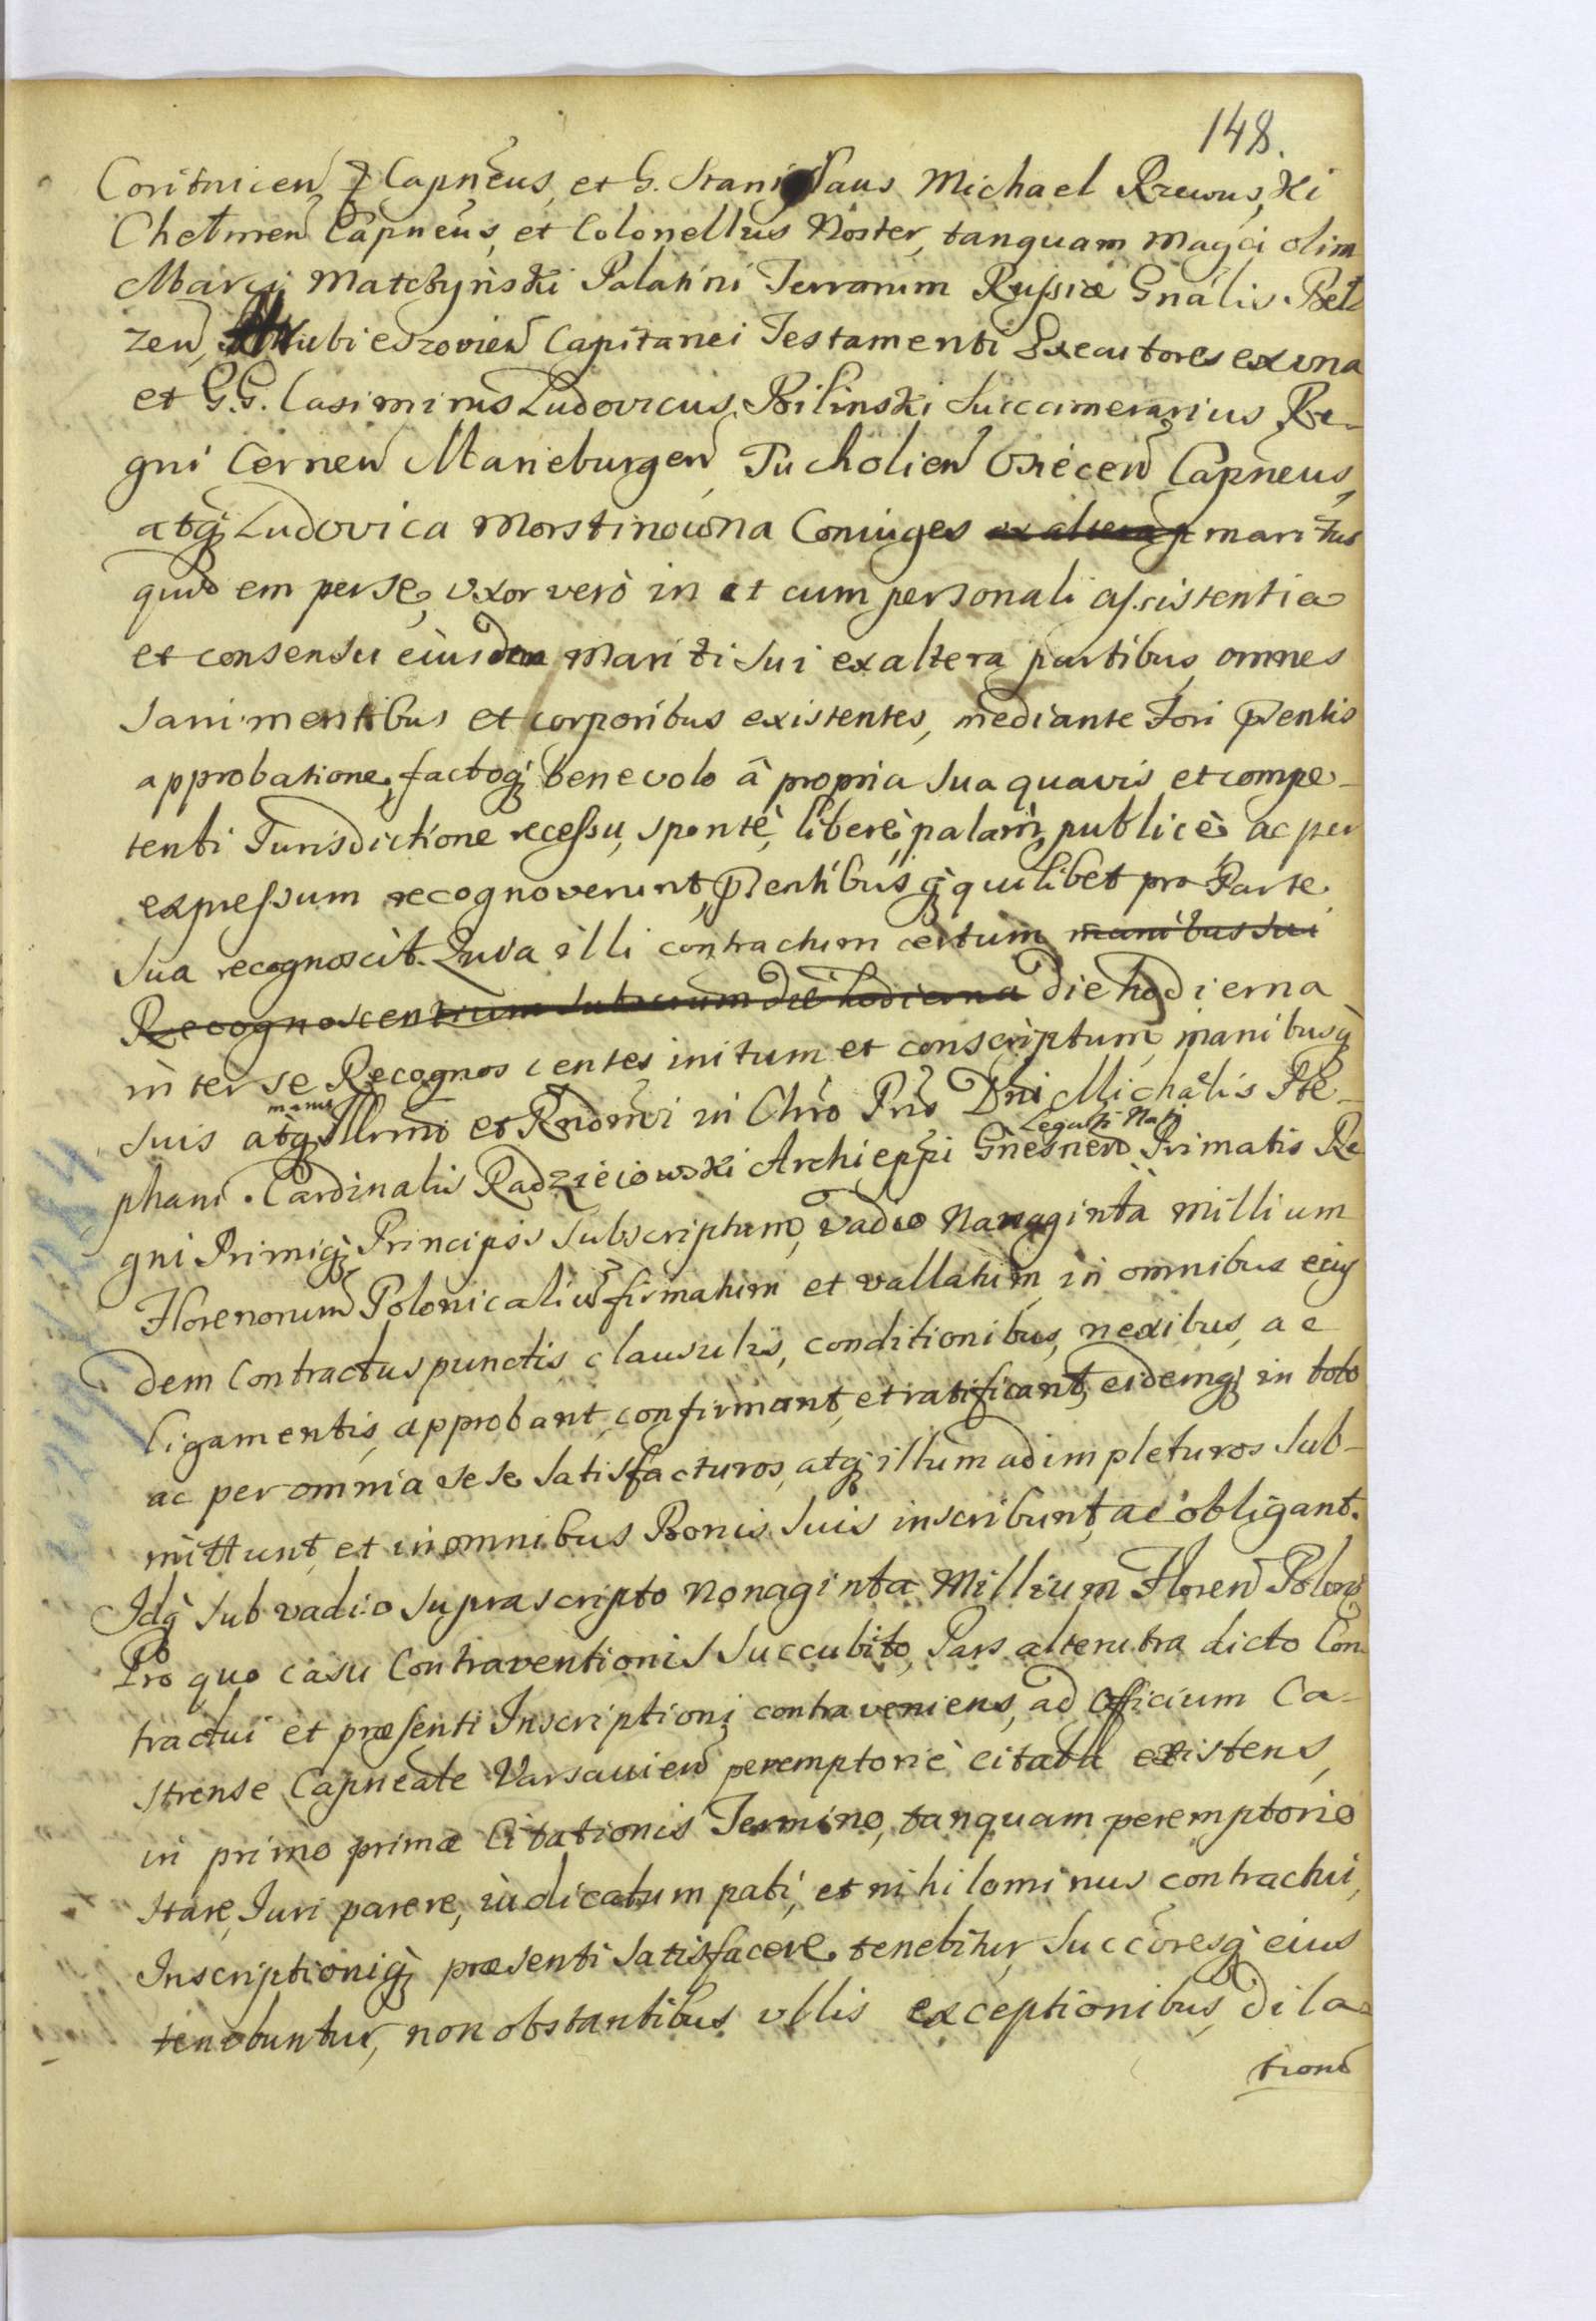 148.
Coritnicen Capneus, et G. Stanislaus Michael Rzewuski
Chelmen Capneus, et Colonellus Noster, tanquam Magci olim
Marci Matczyński Palatini Terrarum Russiæ Gnalis. Bel
zen, Hrubieszovien Capitanei Testamenti Executores ex una
et G.G. Casimirus Ludovicus Bilinski Succamerarius Re-
gni Cernen Marieburgen, Tucholien Osiecen Capneus,
atq Ludovica Morstinowna Coniuges ex altera maritus
quidem per se, uxor verò in et cum personali assistentia
et consensu eiusdem Mariti sui ex altera partibus, omnes
sani mentibus et corporibus existentes, mediante Fori pñtis
approbatione, factoq benevolo à propria sua quavis et compe-
tenti Jurisdictione recessu, spontè, liberè, palam, publicè, ac per
expressum recognoverunt, pñtibusq quilibet pro Parte
sua recognoscit. Quia illi contractum certum manibus sui
Recognoscentium die hodierna die hodierna
inter se Recognoscentes initum et conscriptum, manibusq
suis atq manu Illrmi et Rndmi in Chro Pris Dni Michaelis Ste-
phani Cardinalis Radzieiowski Archieppi Gnesnen Legati Nati Primatis Re
gni Primiq Principis subscriptum, vadio Nonaginta millium
Florenorum Polonicaliu firmatum et vallatum, in omnibus eius
dem Contractus punctis, clausulis, conditionibus, nexibus, ac
ligamentis, approbant, confirmant, et ratificant, eidemq in toto
ac per omnia sese satisfacturos, atq illum adimpleturos sub-
mittunt, et in omnibus Bonis suis inscribunt, ac obligant.
Idq sub vadio suprascripto Nonaginta Millium Floren Polon
Pro quo casu Contraventionis succubito, Pars alterutra dicto Con
tractui et præsenti Inscriptioni contraveniens, ad Officium Ca-
strense Capneale Varsavien peremptoriè citata existens,
in primo primæ Citationis Termino, tanquam peremptorio
stare, Juri parere, iudicatum pati, et nihilominus contractui,
Inscriptioniq præsenti satisfacere tenebitur, Succoresq eius
tenebuntur, non obstantibus ullis exceptionibus, dila-
tione